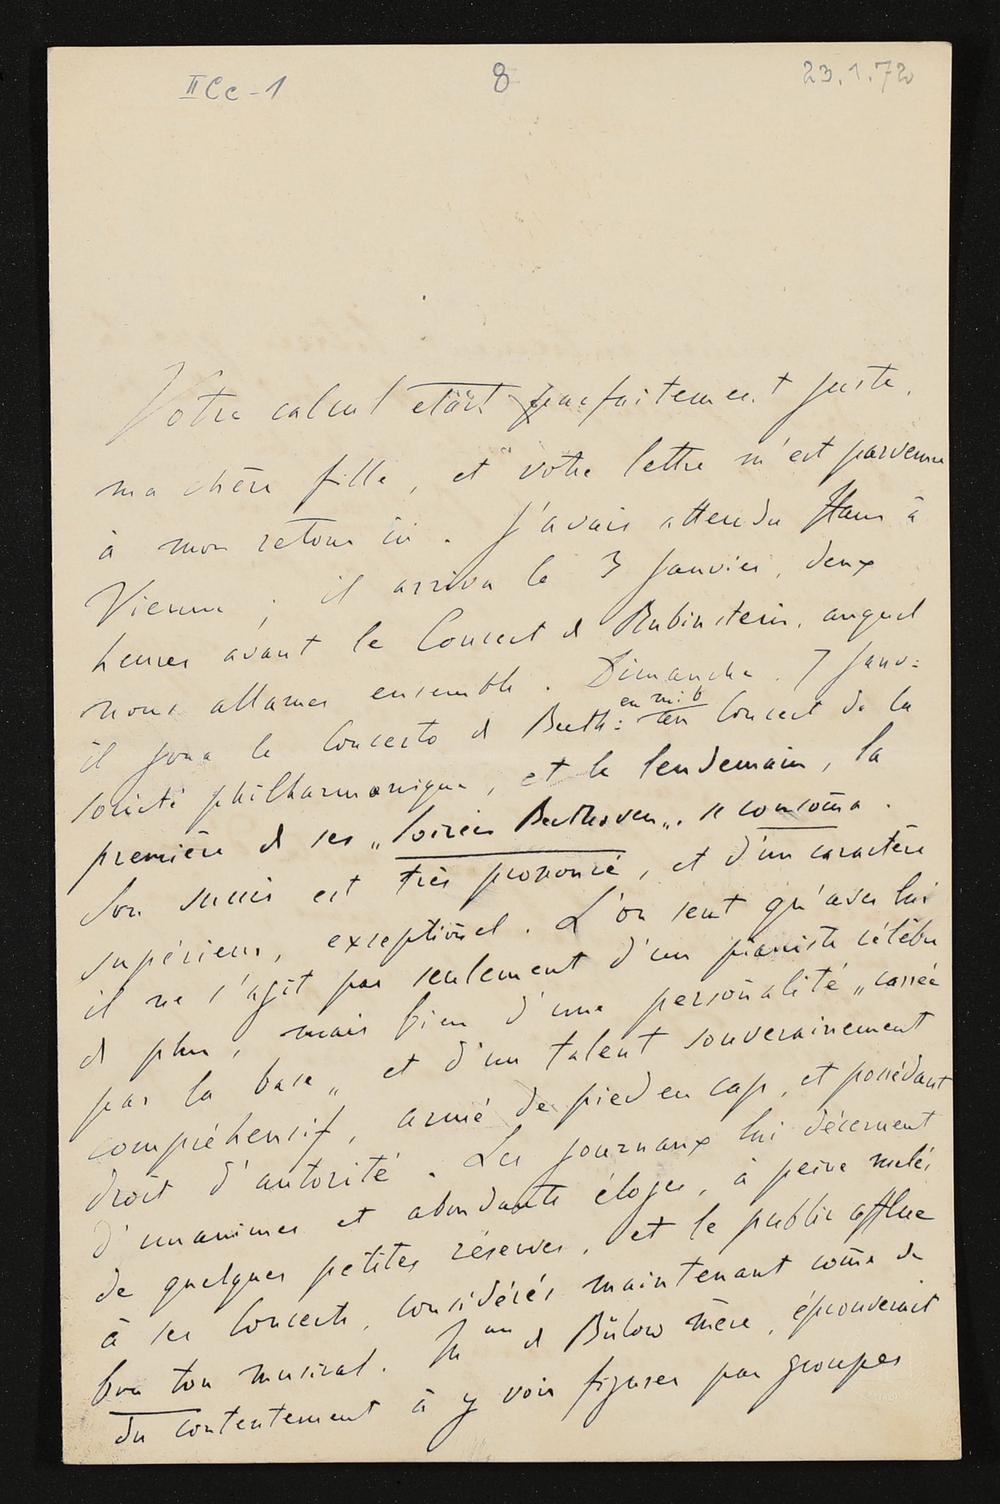 II Cc - 1 8 23.1.72
Votre calcul était parfaitement juste,
ma chère fille, et votre lettre m'est parvenue
à mon retour ici. J'avais attendu Hans à
Vienne; il arriva le 3 Janvier, deux
heures avant le Concert d Rubinstein, auquel
nous allames ensemble. Dimanche, 7 Janv:
il joua le Concerto d Beeth: en mi b au Concert de la
société philharmonique, et le lendemain, la
première d ses „Soirées Beethoven„ se consom̄a.
Son succès est très prononcé, et d'un caractère
supérieur, exception̄el. L'on sent qu'avec lui
il ne s'agit pas seulement d'un pianiste célèbre
d plus, mais bien d'une person̄alité „carrée
par la base„ et d'un talent souverainement
compréhensif, armé de pied en cap, et possédant
droit d'autorité. Les journaux lui décernent
d'unanimes et abondants éloges, à peine mêlés
de quelques petites réserves, et le public afflue
à ses Concerts, considérés maintenant com̄e de
bon ton musical. Mme d Bülow mère, éprouverait
du contentement à y voir figurer par groupes